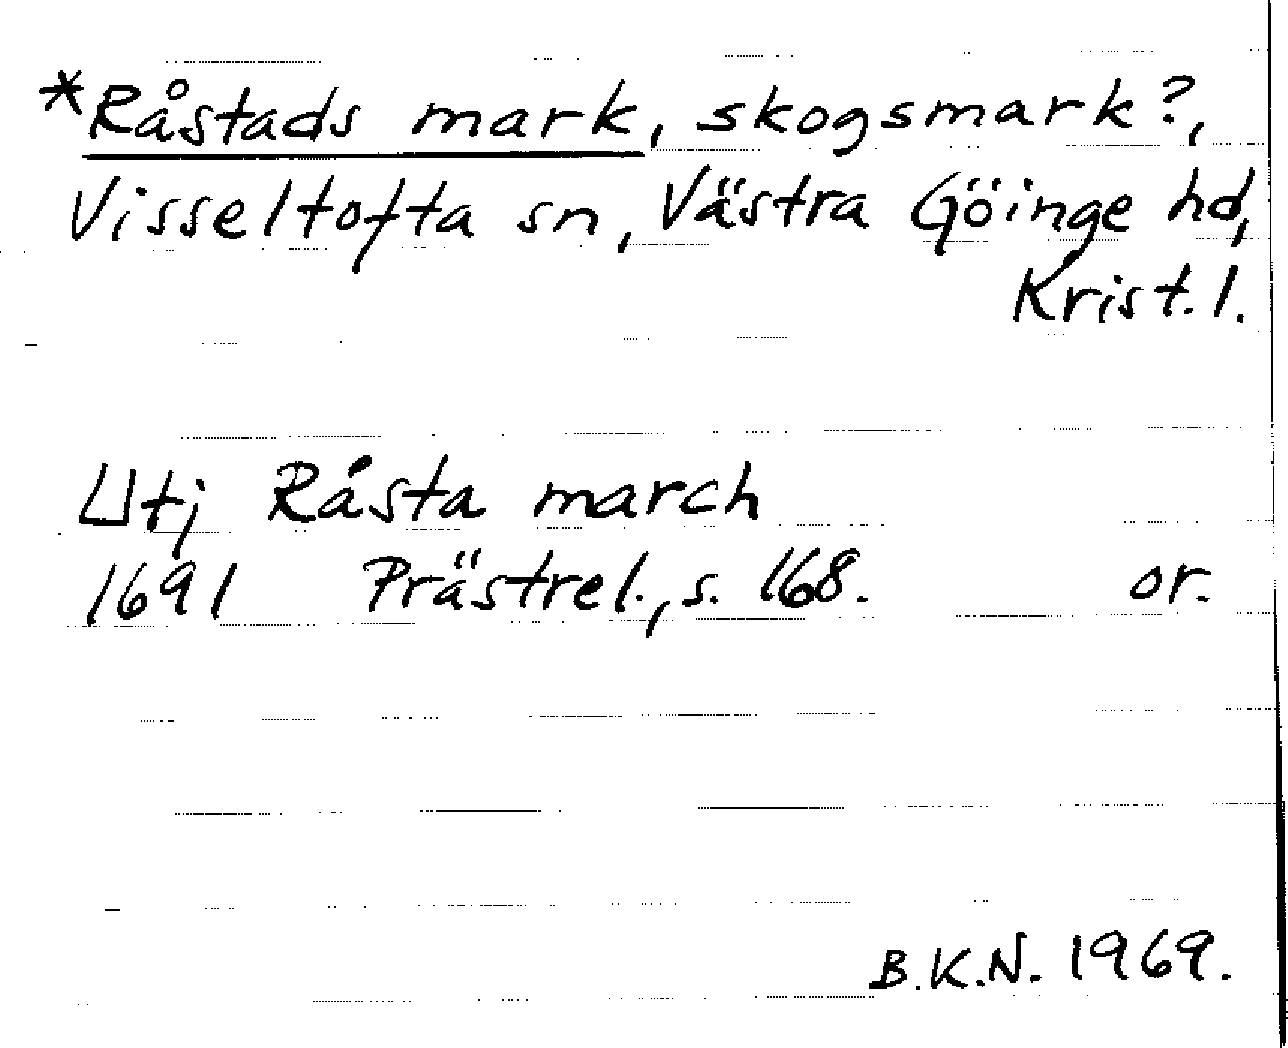 *Råstads mark, skogsmark?,
Visseltofta sn, Västra Göinge hd,
Krist. l.
Utj Råsta march
1691 Prästrel., s. 168. or.
B.K.N. 1969.